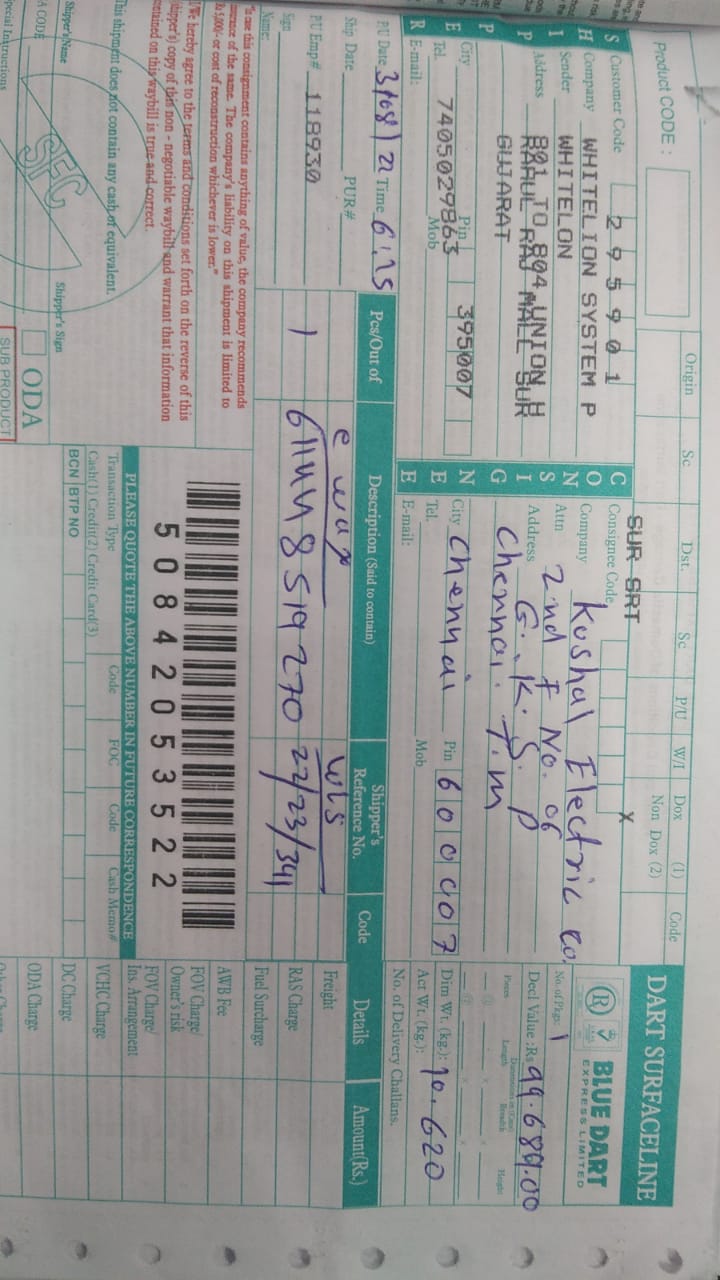 DART SURFACELINE
BLUE DART
EXPRESS LIMITED
Product CODE :
Origin Sc Dst. Sc P/U W/I Dox (1) Code
Non Dox (2)
SUR SRT X
S Customer Code 295901
H Company WHITELION SYSTEM P
I Sender WHITELON
P Address 801 TO 804 UNION H
P RAHUL RAJ MALL SUR
GUJARAT
E City Pin 395007
Tel. 7405029863 Mob
R E-mail:
C Consignee Code
O Company Kushal Electric co.
N Attn 2nd F No. of
S
I Address G.K.S.P
G Chennai. T.m
N City Chennai Pin 600007
E Tel. Mob
E E-mail:
No. of Pkgs: 1
Decl Value :Rs 99.689.00
Dimension in (Cms)
Pieces Length Breadth Height
Dim Wt. (kg.):
Act Wt. (kg.): 10.620
No. of Delivery Challans.
PU Date 3/08/22 Time 6:25
Ship Date PUR#
PU Emp# 118930
Sign
Name:
Pcs/Out of Description (Said to contain) Shipper's Reference No. Code Details Amount(Rs.)
e way
1 611448519270 22/23/341
wls
Freight
RAS Charge
Fuel Surcharge
AWB Fee
FOV Charge/
Owner's risk
FOV Charge/
Ins. Arrangement
VCHC Charge
DC Charge
ODA Charge
Other Charge
"In case this consignment contains anything of value, the company recommends
insurance of the same. The company's liability on this shipment is limited to
Rs 5,000/- or cost of reconstruction whichever is lower."
I/We hereby agree to the terms and conditions set forth on the reverse of this
shipper's) copy of this non - negotiable waybill and warrant that information
contained on this waybill is true and correct.
This shipment does not contain any cash or equivalent.
SFC
Shipper's Name Shipper's Sign
ODA
A CODE
Special Instructions
SUB PRODUCT
50842053522
PLEASE QUOTE THE ABOVE NUMBER IN FUTURE CORRESPONDENCE
Transaction Type Code FOC Code Cash Memo#
Cash(1) Credit(2) Credit Card(3)
BCN BTP NO